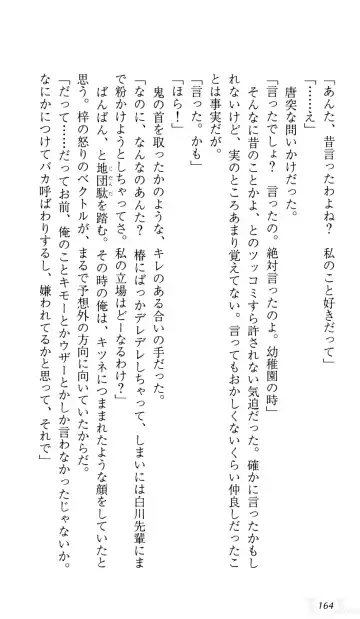 「あんた、昔言ったわよね？　私のこと好きだって」
「……え」
唐突な問いかけだった。
「言ったでしょ？　言ったの。絶対言ったのよ。幼稚園の時」
そんなに昔のことかよ、とのツッコミすら許されない気迫だった。確かに言ったかもし
れないけど、実のところあまり覚えてない。言ってもおかしくないくらい仲良しだったこ
とは事実だが。
「言った。かも」
「ほら！」
鬼の首を取ったかのような、キレのある合いの手だった。
「なのに、なんなのあんた？　椿にばっかデレデレしちゃって、しまいには白川先輩にま
で粉かけようとしちゃってさ。私の立場はどーなるわけ？」
ばんばん、と地団駄を踏む。その時の俺は、キツネにつままれたような顔をしていたと
思う。梓の怒りのベクトルが、まるで予想外の方向に向いていたからだ。
「だって……だってお前、俺のことキモーとかウザーとかしか言わなかったじゃないか。
なにかにつけてバカ呼ばわりするし、嫌われてるかと思って、それで」
164